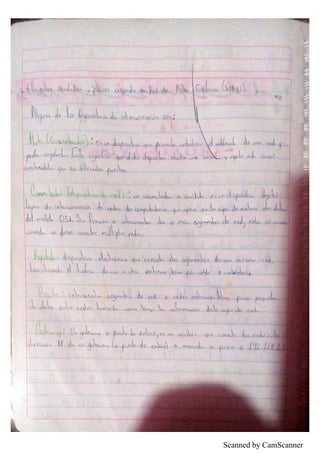 Algunos de los dispositivos de interconexión son:
Hub (Concentrador): es un dispositivo que permite centralizar el cableado de una red y
poder ampliarla. Esto significa que dicho dispositivo recibe una señal y repite esta señal
emitiéndola por sus diferentes puertos.
Conmutador (dispositivo de red): un conmutador o switch es un dispositivo digital
lógico de interconexión de redes de computadoras que opera en la capa de enlace de datos
del modelo OSI. Su función es interconectar dos o más segmentos de red,
cuando se desea conectar múltiples redes.
dispositivo electrónico que conecta dos segmentos de una misma red,
transfiriendo el tráfico de uno a otro extremo, bien por cable o inalámbrico
segmentos de red o redes enteras. Hace pasar paquetes
de datos entre redes tomando como base la información de la capa de red.
Gateway: Un gateway o puerta de enlace, es un router que conecta dos redes. La
dirección IP de un gateway (o puerta de enlace) a menudo se parece a 192.168.1.1
Scanned by CamScanner